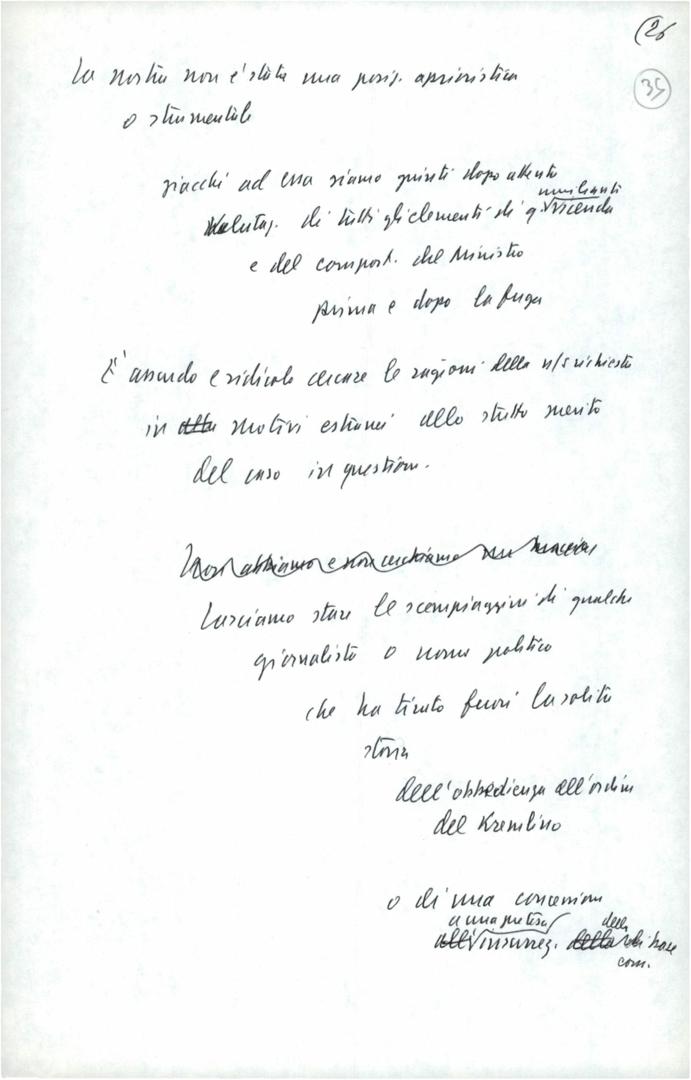 (26
35
La nostra non è stata una posiz. aprioristica
o strumentale
giacché ad essa siamo giunti dopo attenta
valutaz. di tutti gli elementi di q. umilianti vicenda
e del comport. del Ministro
prima e dopo la fuga
È assurdo e ridicolo cercare le ragioni della n/s richiesta
in altri motivi estranei allo stretto merito
del caso in question.
Non abbiamo e non cerchiamo
Lasciamo stare le scempiaggini di qualche
giornalista o uomo politico
che ha tirato fuori la solita
storia
dell'obbedienza all'ordine
del Kremlino
o di una concession
a una pretesa della
all' insurrez. della di base
com.